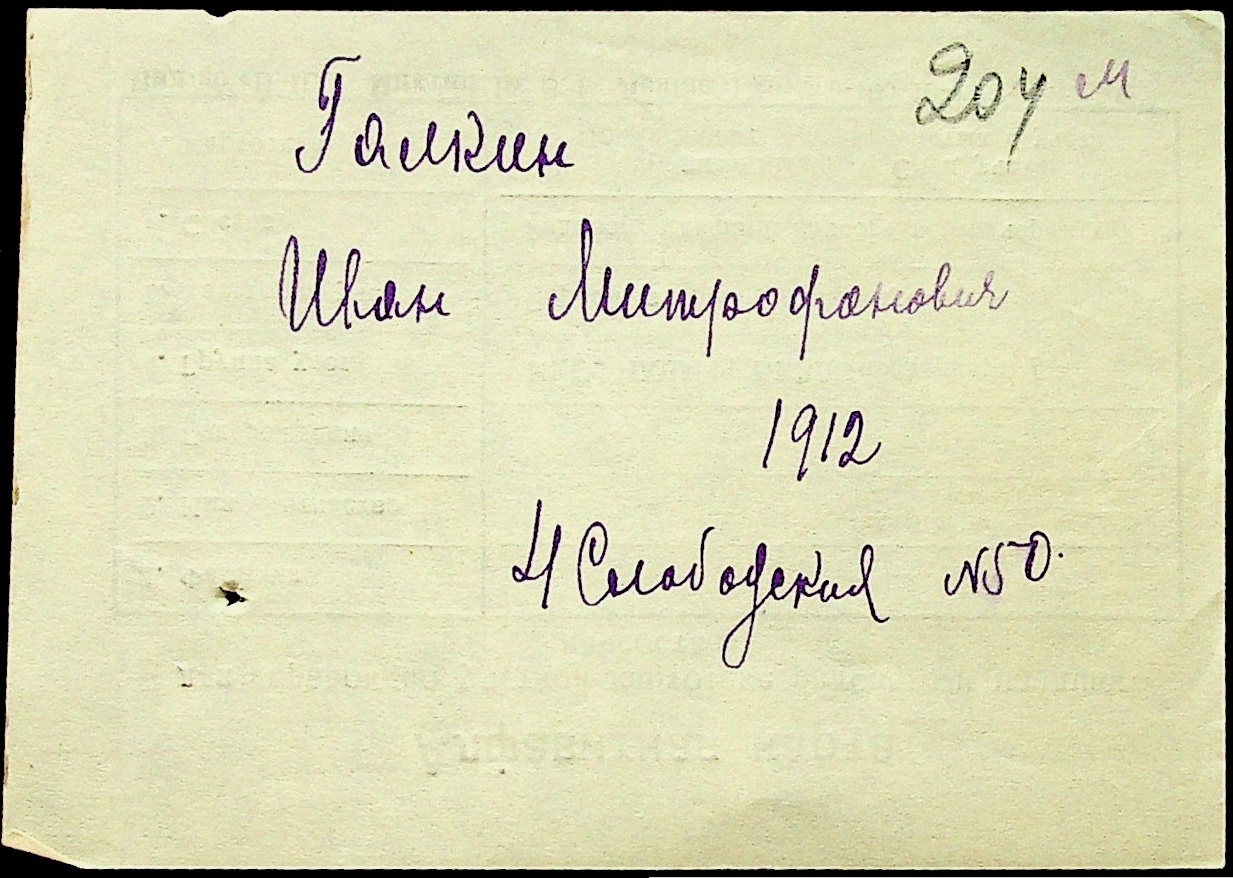 204 м
Галкин
Иван Митрофанович
1912
4 Слободская №50.